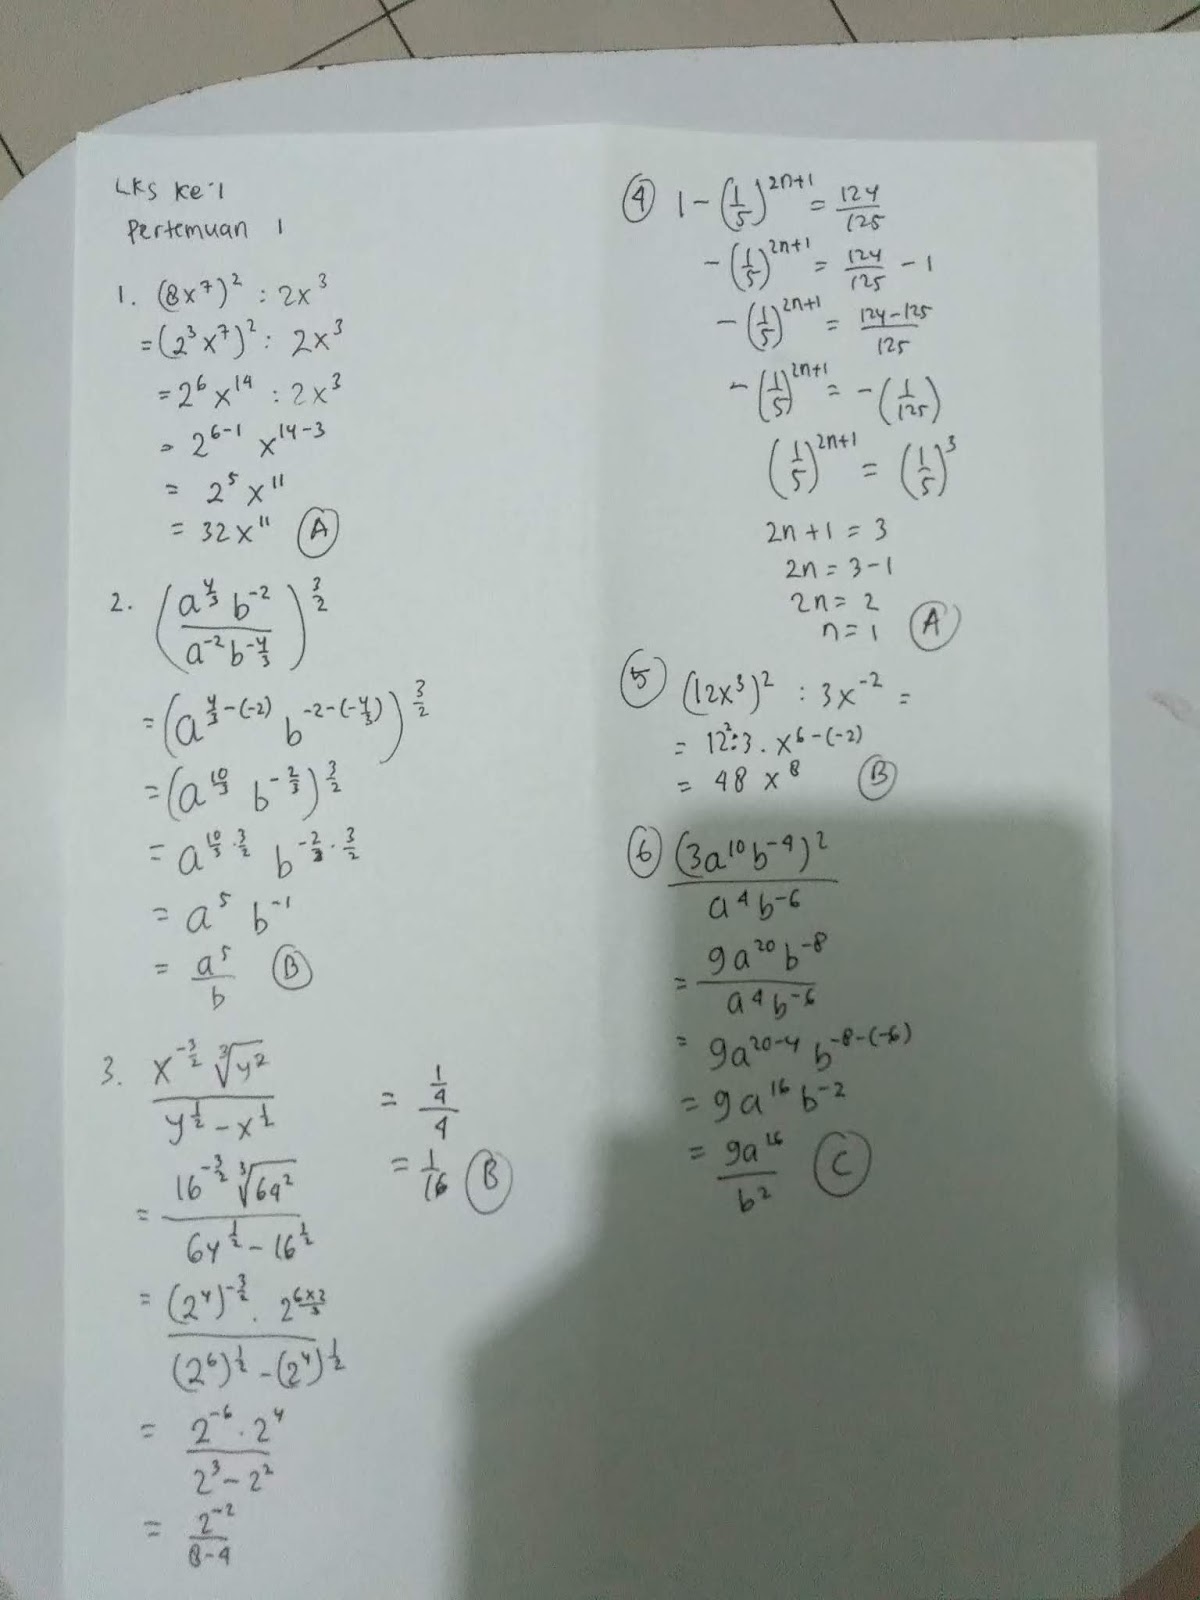 LKS ke-1
Pertemuan 1
1. (8x⁷)² : 2x³
= (2³x⁷)² : 2x³
= 2⁶x¹⁴ : 2x³
= 2⁶⁻¹ x¹⁴⁻³
= 2⁵x¹¹
= 32x¹¹ (A)
2. (a^(4/3) b^(-2) / a^(-2) b^(-4/3))^(3/2)
= (a^(4/3-(-2)) b^(-2-(-4/3)))^(3/2)
= (a^(10/3) b^(-2/3))^(3/2)
= a^(10/3 · 3/2) b^(-2/3 · 3/2)
= a⁵ b⁻¹
= a⁵/b (B)
3. x^(-3/2) ∛y² / y^(1/2) - x^(1/2)
= 16^(-3/2) ∛64² / 64^(1/2) - 16^(1/2)
= (2⁴)^(-3/2) . 2^(6×2/3) / (2⁶)^(1/2) - (2⁴)^(1/2)
= 2⁻⁶ . 2⁴ / 2³ - 2²
= 2⁻² / 8-4
= 1/4 / 4
= 1/16 (B)
(4) 1 - (1/5)^(2n+1) = 124/125
- (1/5)^(2n+1) = 124/125 - 1
- (1/5)^(2n+1) = 124-125/125
- (1/5)^(2n+1) = - (1/125)
(1/5)^(2n+1) = (1/5)³
2n+1 = 3
2n = 3-1
2n = 2
n = 1 (A)
(5) (12x³)² : 3x⁻² =
= 12² : 3 . x^(6-(-2))
= 48 x⁸ (B)
(6) (3a¹⁰b⁻⁴)² / a⁴b⁻⁶
= 9a²⁰b⁻⁸ / a⁴b⁻⁶
= 9a²⁰⁻⁴ b^(-8-(-6))
= 9a¹⁶ b⁻²
= 9a¹⁶ / b² (C)